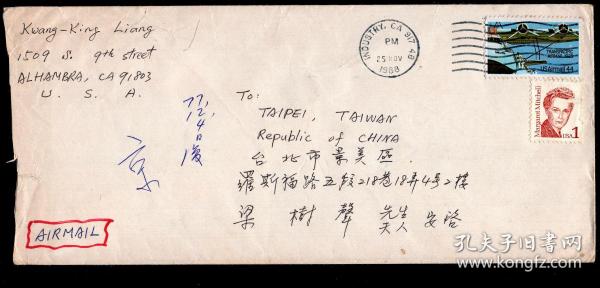 Kwang-King Liang
1509 S. 9th street
ALHAMBRA, CA 91803
U. S. A.
INDUSTRY, CA 917 48
PM
25 NOV
1988
TRANSPACIFIC
AIRMAIL 1935
USAirmail 44
Margaret Mitchell
USA 1
77,
12,
4日
復
To:
TAIPEI, TAIWAN
Republic of CHINA
台北市景美區
羅斯福路五段218巷18弄4号2樓
梁樹聲 先生 夫人 安啓
AIRMAIL
孔夫子旧书网
www.kongfz.com